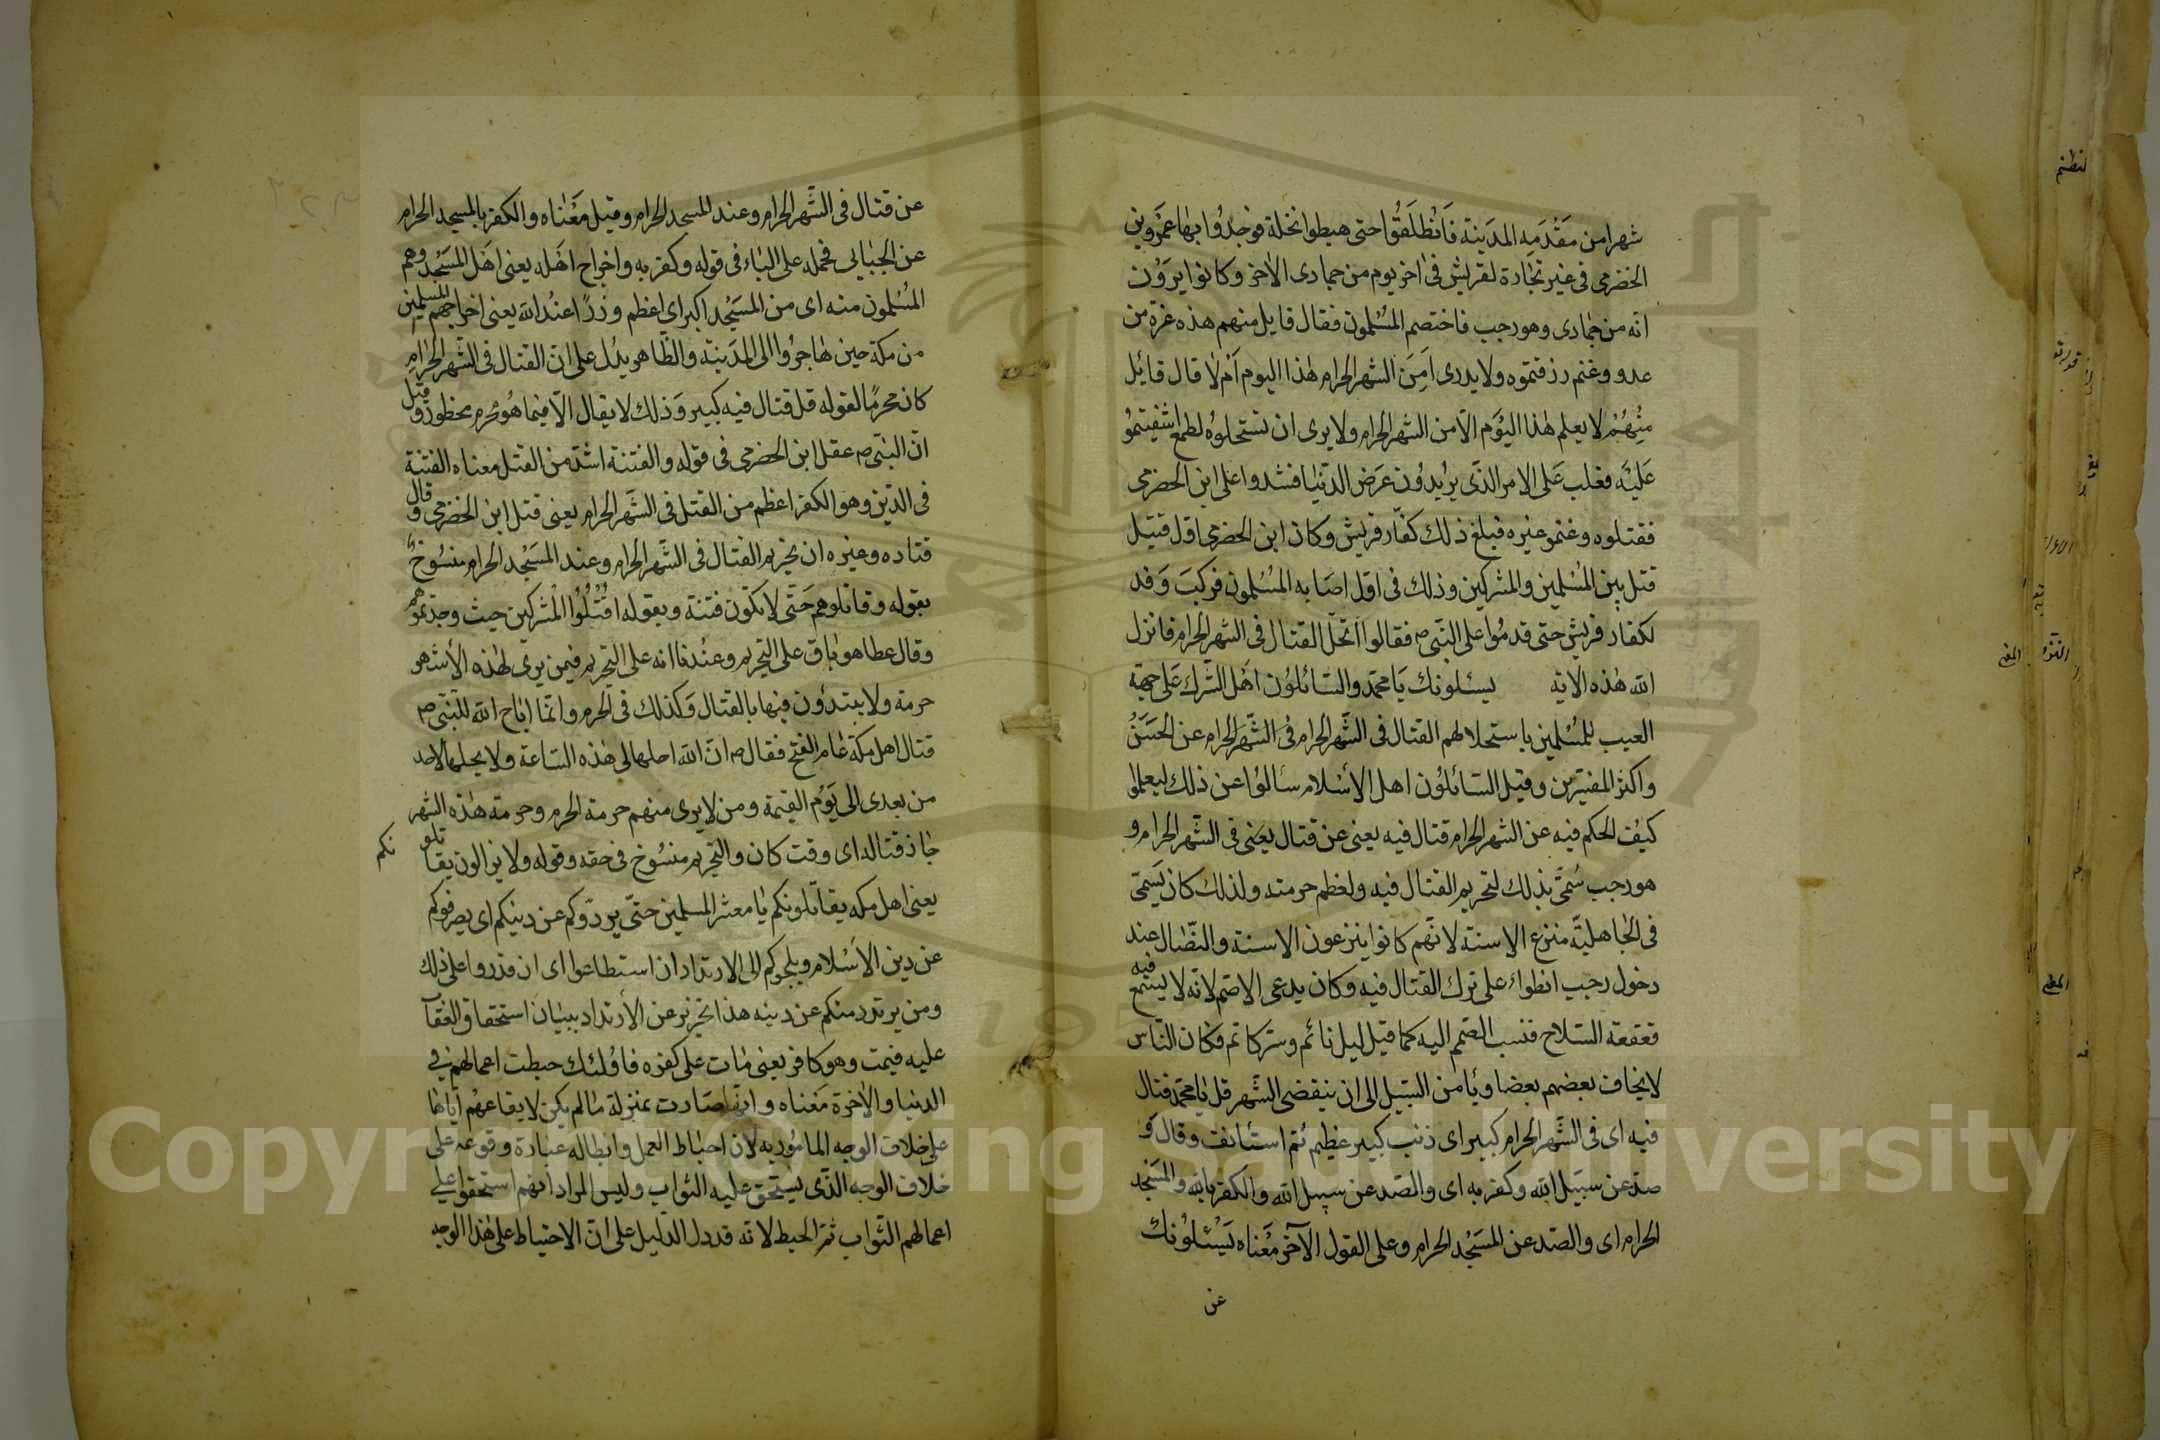 شهرا من مقدمه المدينة فانطلقوا حتى هبطوا نخلة فوجدوا بها عمرو بن
الحضرمى فى عير تجارة لقريش فى اخر يوم من جمادى الاخر وكانوا يرون
انه من جمادى وهو رجب فاختصم المسلمون فقال قايل منهم هذه غرة من
عدو وغنم رزقتموه ولا يدرى امن الشهر الحرام هذا اليوم ام لا قال قائل
منهم لا يعلم هذا اليوم الا من الشهر الحرام ولا يرى ان تستحلوه لطمع اشفيتم
عليه فغلب على الامر الذى يريدون عرض الدنيا فشدوا على ابن الحضرمى
فقتلوه وغنمو عيره فبلغ ذلك كفار قريش وكان ابن الحضرمى اول قتيل
قتل بين المسلمين والمشركين وذلك فى اول اصابه المسلمون فركب وفد
لكفار قريش حتى قدموا على النبى ص فقالوا اتحل القتال فى الشهر الحرام فانزل
الله هذه الاية يسئلونك يا محمد والسائلون اهل الشرك على جهة
العيب للمسلمين باستحلالهم القتال فى الشهر الحرام فى الشهر الحرام عن الحسن
واكثر المفسرين وقيل السائلون اهل الاسلام سالوا عن ذلك ليعلموا
كيف الحكم فيه عن الشهر الحرام قتال فيه يعنى عن قتال يعنى فى الشهر الحرام و
هو رجب سمى بذلك لتحريم القتال فيه ولعظم حرمته ولذلك كان يسمى
فى الجاهلية منزع الاسنة لانهم كانوا ينزعون الاسنة والنصال عند
دخول رجب انطواء على ترك القتال فيه وكان يدعى الاصم لانه لا يسمع فيه
قعقعة السلاح فنسب الصمم اليه كما قيل ليل نائم وسركاتم فكان الناس
لا يخاف بعضهم بعضا ويأمن السبيل الى ان ينقضى الشهر قل يا محمد قتال
فيه اى فى الشهر الحرام كبير اى ذنب كبير عظيم ثم استانف وقال و
صد عن سبيل الله وكفر به اى والصد عن سبيل الله والكفر بالله والمسجد
الحرام اى والصد عن المسجد الحرام وعلى القول الآخر معناه يسئلونك
عن
عن قتال فى الشهر الحرام وعند المسجد الحرام وقيل معناه والكفر بالمسجد الحرام
عن الجبالى فحمله على الباء فى قوله وكفر به واخراج اهله يعنى اهل المسجد وهم
المسلمون منه اى من المسجد اكبر اى اعظم وزرا عند الله يعنى اخراجهم للمسلمين
من مكة حين هاجروا الى المدينة والظاهر يدل على ان القتال فى الشهر الحرام
كان محرما لقوله قل قتال فيه كبير وذلك لا يقال الا فيما هو محرم محظور وقيل
ان النبى ص عقل ابن الحضرمى فى قوله والفتنة اشد من القتل معناه الفتنة
فى الدين وهو الكفر اعظم من القتل فى الشهر الحرام يعنى قتل ابن الحضرمى وقال
قتاده وغيره ان تحريم القتال فى الشهر الحرام وعند المسجد الحرام منسوخ
بقوله وقاتلوهم حتى لا تكون فتنة وبقوله اقتلوا المشركين حيث وجدتموهم
وقال عطا هو باق على التحريم وعندنا انه على التحريم فيمن يرى لهذه الأشهر
حرمة ولا يبتدؤن فيها بالقتال وكذلك فى الحرم وانما اباح الله للنبى ص
قتال اهل مكة عام الفتح فقال ص ان الله احلها لى هذه الساعة ولا يحلها لاحد
من بعدى الى يوم القيمة ومن لا يرى منهم حرمة الحرم وحرمة هذه الشهر
جاز قتاله اى وقت كان والتحريم منسوخ فى حقه وقوله ولا يزالون يقاتلونكم
يعنى اهل مكه يقاتلونكم يا معشر المسلمين حتى يردوكم عن دينكم اى يصرفوكم
عن دين الاسلام ويلجوكم الى الارتداد ان استطاعوا اى ان قدروا على ذلك
ومن يرتدد منكم عن دينه هذا تحزير عن الأرتداد ببيان استحقاق العقاب
عليه فيمت وهو كافر يعنى مات على كفره فاولئك حبطت اعمالهم فى
الدنيا والاخرة معناه وانها صارت بمنزلة مالم يكن لايقاعهم اياها
على خلاف الوجه المامور به لان احباط العمل وابطاله عبارة وقوعه على
خلاف الوجه الذى يستحق عليه الثواب وليس المراد انهم استحقوا على
اعمالهم الثواب ثم الحبط لانه قد دل الدليل على ان الاحتياط على هذا الوجه
Copyright © King Saud University